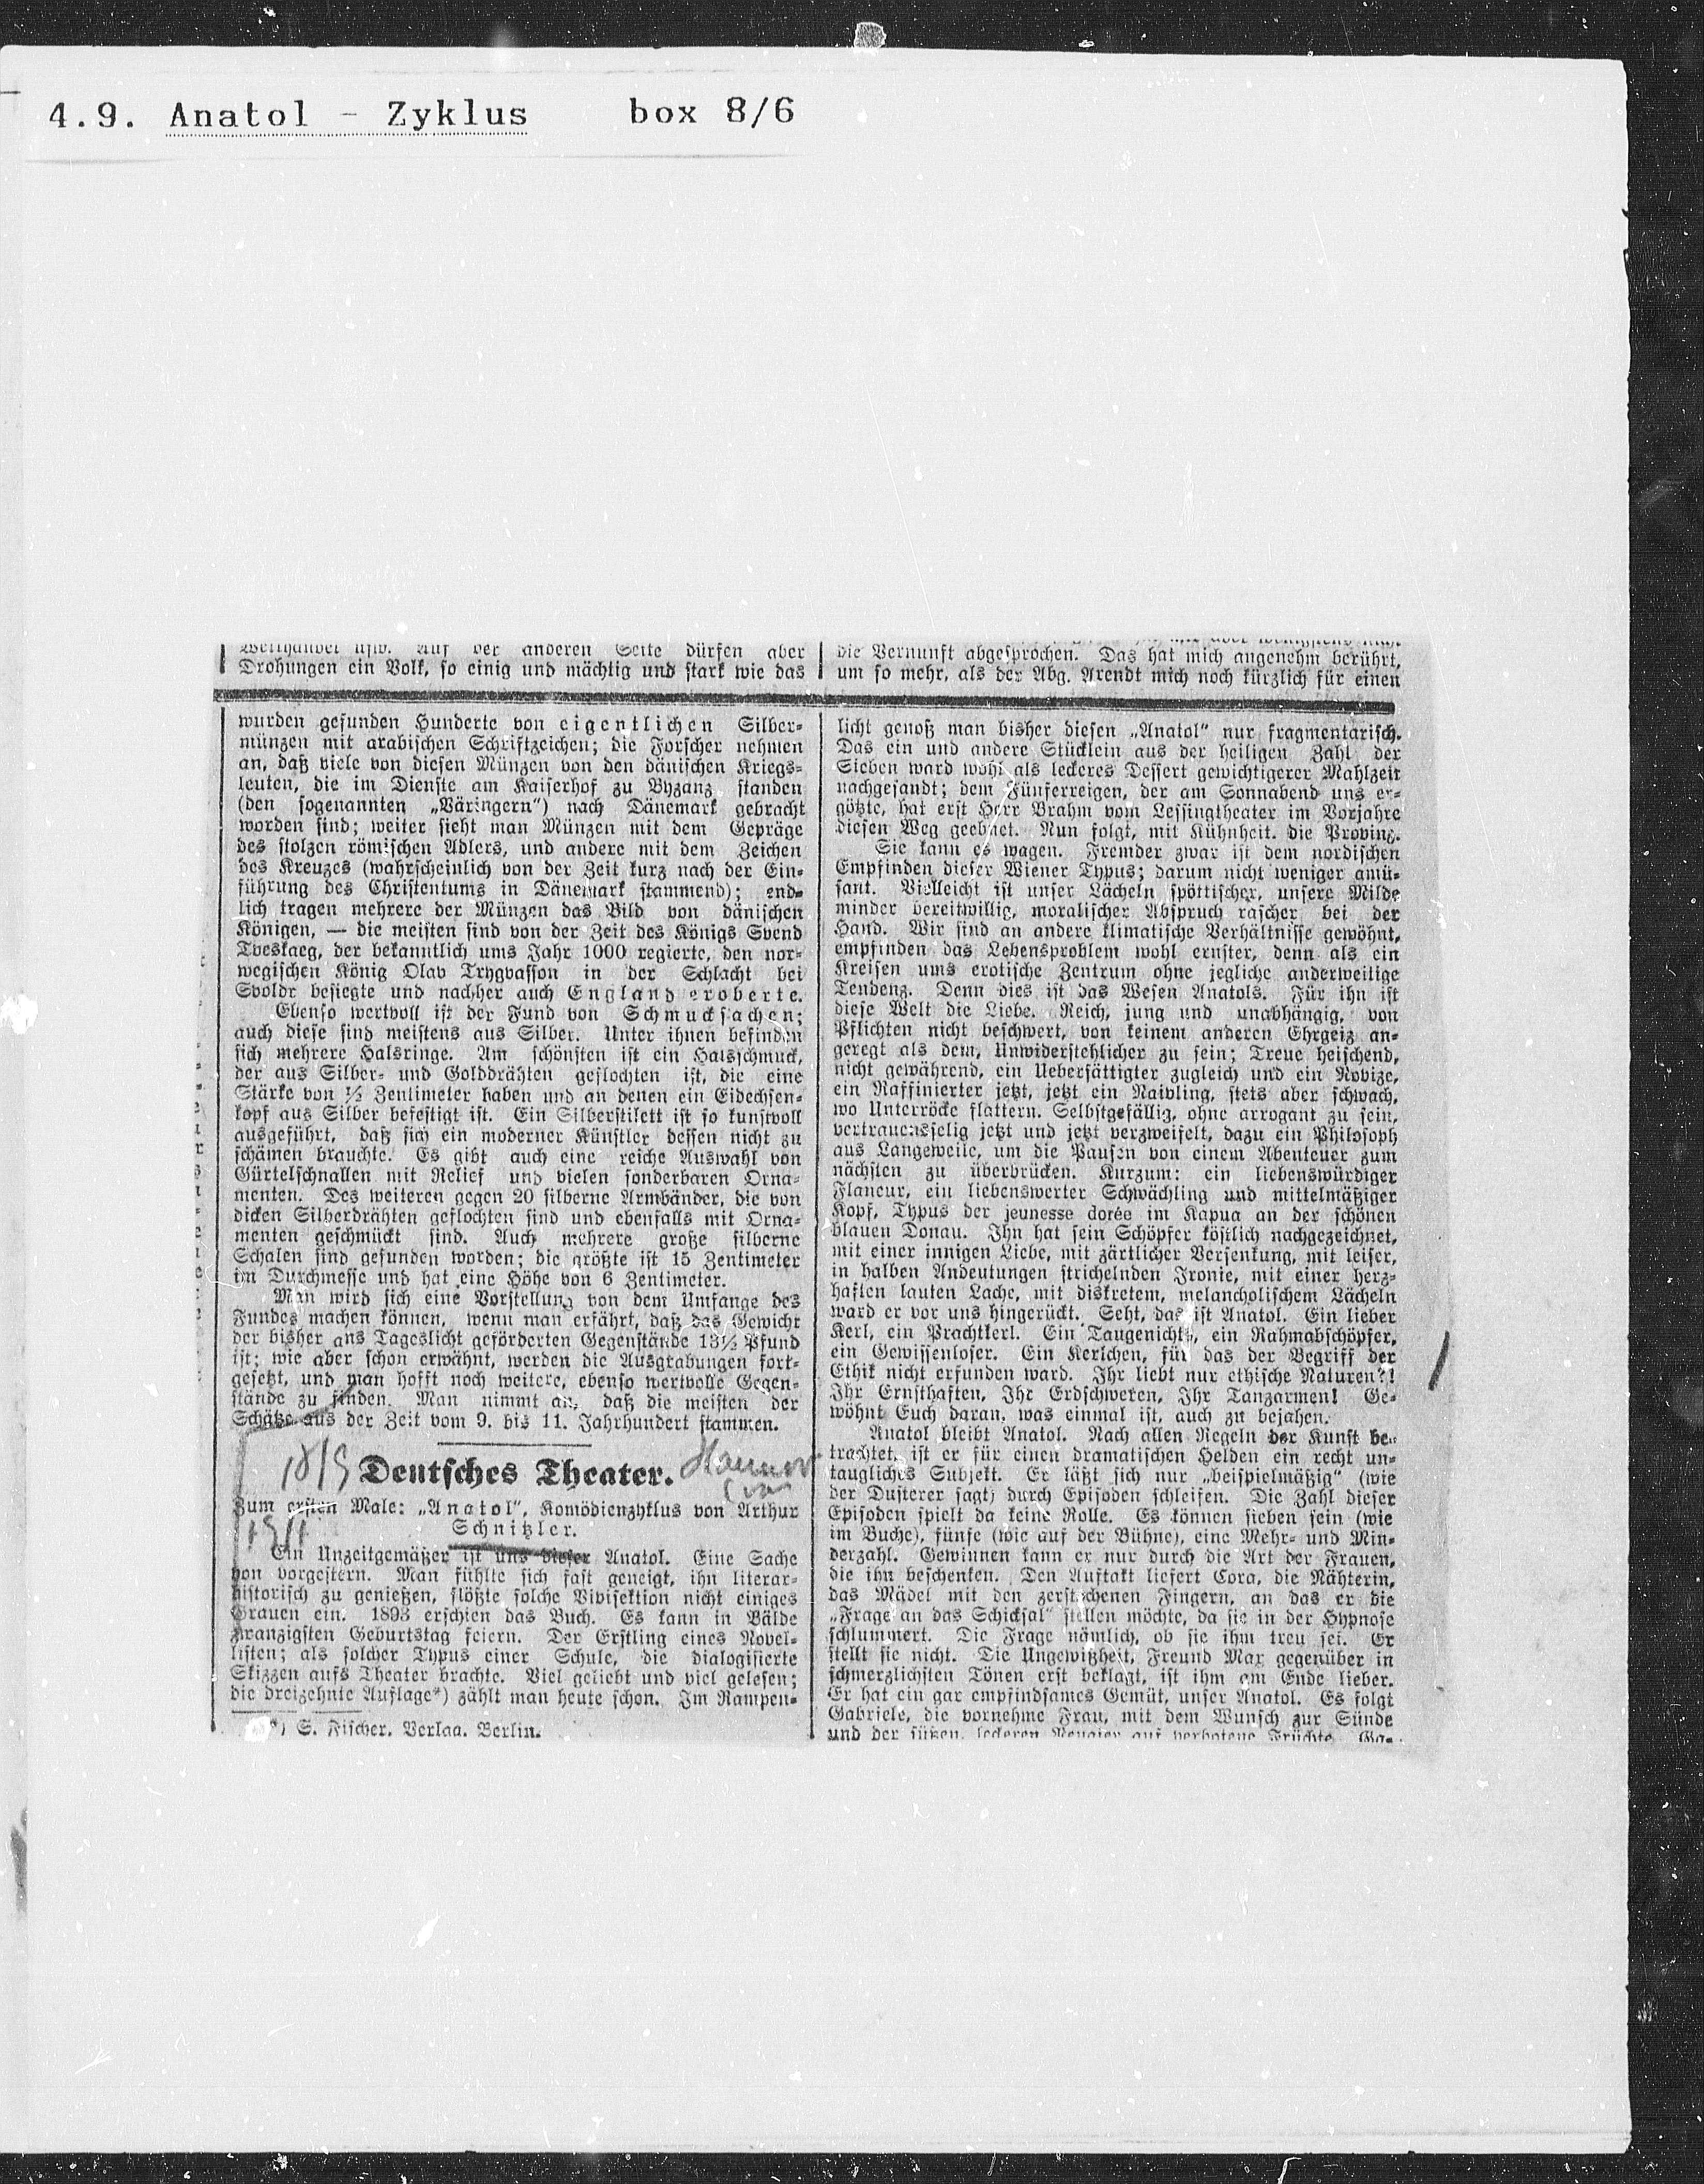 4.9. Anatol - Zyklus box 8/6
Welthandel usw. Auf der anderen Seite dürfen aber
Drohungen ein Volk, so einig und mächtig und stark wie das
die Vernunft abgesprochen. Das hat mich angenehm berührt,
um so mehr, als der Abg. Arendt mich noch kürzlich für einen
wurden gefunden Hunderte von eigentlichen Silber-
münzen mit arabischen Schriftzeichen; die Forscher nehmen
an, daß viele von diesen Münzen von den dänischen Kriegs-
leuten, die im Dienste am Kaiserhof zu Byzanz standen
(den sogenannten „Väringern“) nach Dänemark gebracht
worden sind; weiter sieht man Münzen mit dem Gepräge
des stolzen römischen Adlers, und andere mit dem Zeichen
des Kreuzes (wahrscheinlich von der Zeit kurz nach der Ein-
führung des Christentums in Dänemark stammend); end-
lich tragen mehrere der Münzen das Bild von dänischen
Königen, — die meisten sind von der Zeit des Königs Svend
Tveskaeg, der bekanntlich ums Jahr 1000 regierte, den nor-
wegischen König Olav Trygvasson in der Schlacht bei
Svoldr besiegte und nachher auch England eroberte.
Ebenso wertvoll ist der Fund von Schmucksachen;
auch diese sind meistens aus Silber. Unter ihnen befinden
sich mehrere Halsringe. Am schönsten ist ein Halsschmuck,
der aus Silber- und Golddrähten geflochten ist, die eine
Stärke von ½ Zentimeter haben und an denen ein Eidechsen-
kopf aus Silber befestigt ist. Ein Silberstilett ist so kunstvoll
ausgeführt, daß sich ein moderner Künstler dessen nicht zu
schämen brauchte. Es gibt auch eine reiche Auswahl von
Gürtelschnallen mit Relief und vielen sonderbaren Orna-
menten. Des weiteren gegen 20 silberne Armbänder, die von
dicken Silberdrähten geflochten sind und ebenfalls mit Orna-
menten geschmückt sind. Auch mehrere große silberne
Schalen sind gefunden worden; die größte ist 15 Zentimeter
im Durchmesse und hat eine Höhe von 6 Zentimeter.
Man wird sich eine Vorstellung von dem Umfange des
Fundes machen können, wenn man erfährt, daß das Gewicht
der bisher ans Tageslicht geförderten Gegenstände 13½ Pfund
ist; wie aber schon erwähnt, werden die Ausgrabungen fort-
gesetzt, und man hofft noch weitere, ebenso wertvolle Gegen-
stände zu finden. Man nimmt an, daß die meisten der
Schätze aus der Zeit vom 9. bis 11. Jahrhundert stammen.
18/9 Deutsches Theater. Hannover
Zum ersten Male: „Anatol“, Komödienzyklus von Arthur
1911 Schnitzler.
Ein Unzeitgemäßer ist uns dieser Anatol. Eine Sache
von vorgestern. Man fühlte sich fast geneigt, ihn literar-
historisch zu genießen, flößte solche Vivisektion nicht einiges
Grauen ein. 1893 erschien das Buch. Es kann in Bälde
zwanzigsten Geburtstag feiern. Der Erstling eines Novel-
listen; als solcher Typus einer Schule, die dialogisierte
Skizzen aufs Theater brachte. Viel geliebt und viel gelesen;
die dreizehnte Auflage*) zählt man heute schon. Im Rampen-
*) S. Fischer, Verlag, Berlin.
licht genoß man bisher diesen „Anatol“ nur fragmentarisch.
Das ein und andere Stücklein aus der heiligen Zahl der
Sieben ward wohl als leckeres Dessert gewichtigerer Mahlzeit
nachgesandt; dem Fünferreigen, der am Sonnabend uns er-
götzte, hat erst Herr Brahm vom Lessingtheater im Vorjahre
diesen Weg geebnet. Nun folgt, mit Kühnheit, die Provinz.
Sie kann es wagen. Fremder zwar ist dem nordischen
Empfinden dieser Wiener Typus; darum nicht weniger amü-
sant. Vielleicht ist unser Lächeln spöttischer, unsere Milde
minder bereitwillig, moralischer Abspruch rascher bei der
Hand. Wir sind an andere klimatische Verhältnisse gewöhnt,
empfinden das Lebensproblem wohl ernster, denn als ein
Kreisen ums erotische Zentrum ohne jegliche anderweitige
Tendenz. Denn dies ist das Wesen Anatols. Für ihn ist
diese Welt die Liebe. Reich, jung und unabhängig, von
Pflichten nicht beschwert, von keinem anderen Ehrgeiz an-
geregt als dem, Unwiderstehlicher zu sein; Treue heischend,
nicht gewährend, ein Uebersättigter zugleich und ein Novize,
ein Raffinierter jetzt, jetzt ein Naivling, stets aber schwach,
wo Unterröcke flattern. Selbstgefällig, ohne arrogant zu sein,
vertrauensselig jetzt und jetzt verzweifelt, dazu ein Philosoph
aus Langeweile, um die Pausen von einem Abenteuer zum
nächsten zu überbrücken. Kurzum: ein liebenswürdiger
Flaneur, ein liebenswerter Schwächling und mittelmäßiger
Kopf, Typus der jeunesse dorée im Kapua an der schönen
blauen Donau. Ihn hat sein Schöpfer köstlich nachgezeichnet,
mit einer innigen Liebe, mit zärtlicher Versenkung, mit leiser,
in halben Andeutungen strichelnden Ironie, mit einer herz-
haften lauten Lache, mit diskretem, melancholischem Lächeln
ward er vor uns hingerückt. Seht, das ist Anatol. Ein lieber
Kerl, ein Prachtkerl. Ein Taugenichts, ein Rahmabschöpfer,
ein Gewissenloser. Ein Kerlchen, für das der Begriff der
Ethik nicht erfunden ward. Ihr liebt nur ethische Naturen?!
Ihr Ernsthaften, Ihr Erdschweren, Ihr Tanzarmen! Ge-
wöhnt Euch daran, was einmal ist, auch zu bejahen.
Anatol bleibt Anatol. Nach allen Regeln der Kunst be-
trachtet, ist er für einen dramatischen Helden ein recht un-
taugliches Subjekt. Er läßt sich nur „beispielmäßig“ (wie
der Dusterer sagt) durch Episoden schleifen. Die Zahl dieser
Episoden spielt da keine Rolle. Es können sieben sein (wie
im Buche), fünfe (wie auf der Bühne), eine Mehr- und Min-
derzahl. Gewinnen kann er nur durch die Art der Frauen,
die ihn beschenken. Den Auftakt liefert Cora, die Nähterin,
das Mädel mit den zerstochenen Fingern, an das er die
„Frage an das Schicksal“ stellen möchte, da sie in der Hypnose
schlummert. Die Frage nämlich, ob sie ihm treu sei. Er
stellt sie nicht. Die Ungewißheit, Freund Max gegenüber in
schmerzlichsten Tönen erst beklagt, ist ihm am Ende lieber.
Er hat ein gar empfindsames Gemüt, unser Anatol. Es folgt
Gabriele, die vornehme Frau, mit dem Wunsch zur Sünde
und der süßen, leckeren Neugier auf verbotene Früchte. Ga-